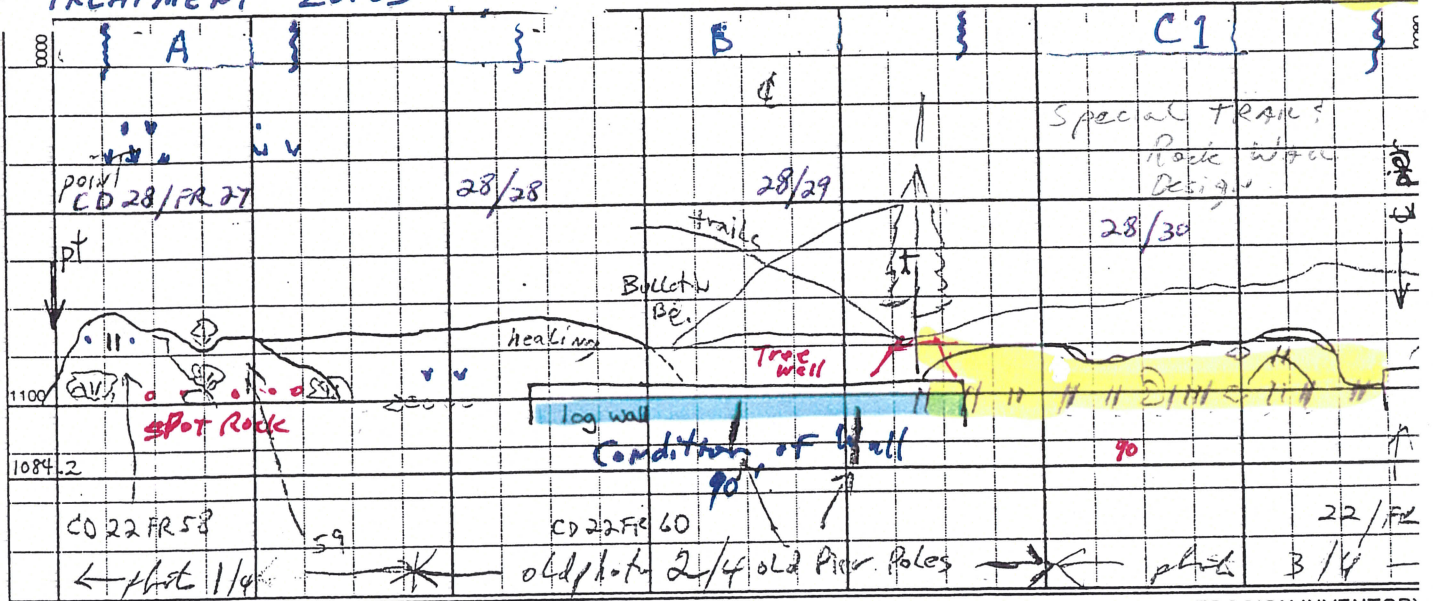 TREATMENT ZONES
0000 A B C1
₵
Special TRAIL &
Rock Wall
Design
point
CD 28/FR 27 28/28 28/29
28/30
pier
trails
pt
Bulletin
Bd.
healing
Tree
well
1100
log wall
SPOT ROCK
Condition of Wall
90'
90
1084.2
CD 22 FR 58 CD 22 FR 60 22/FR
59
← photo 1/4 old photo 2/4 old Pier Poles photo 3/4